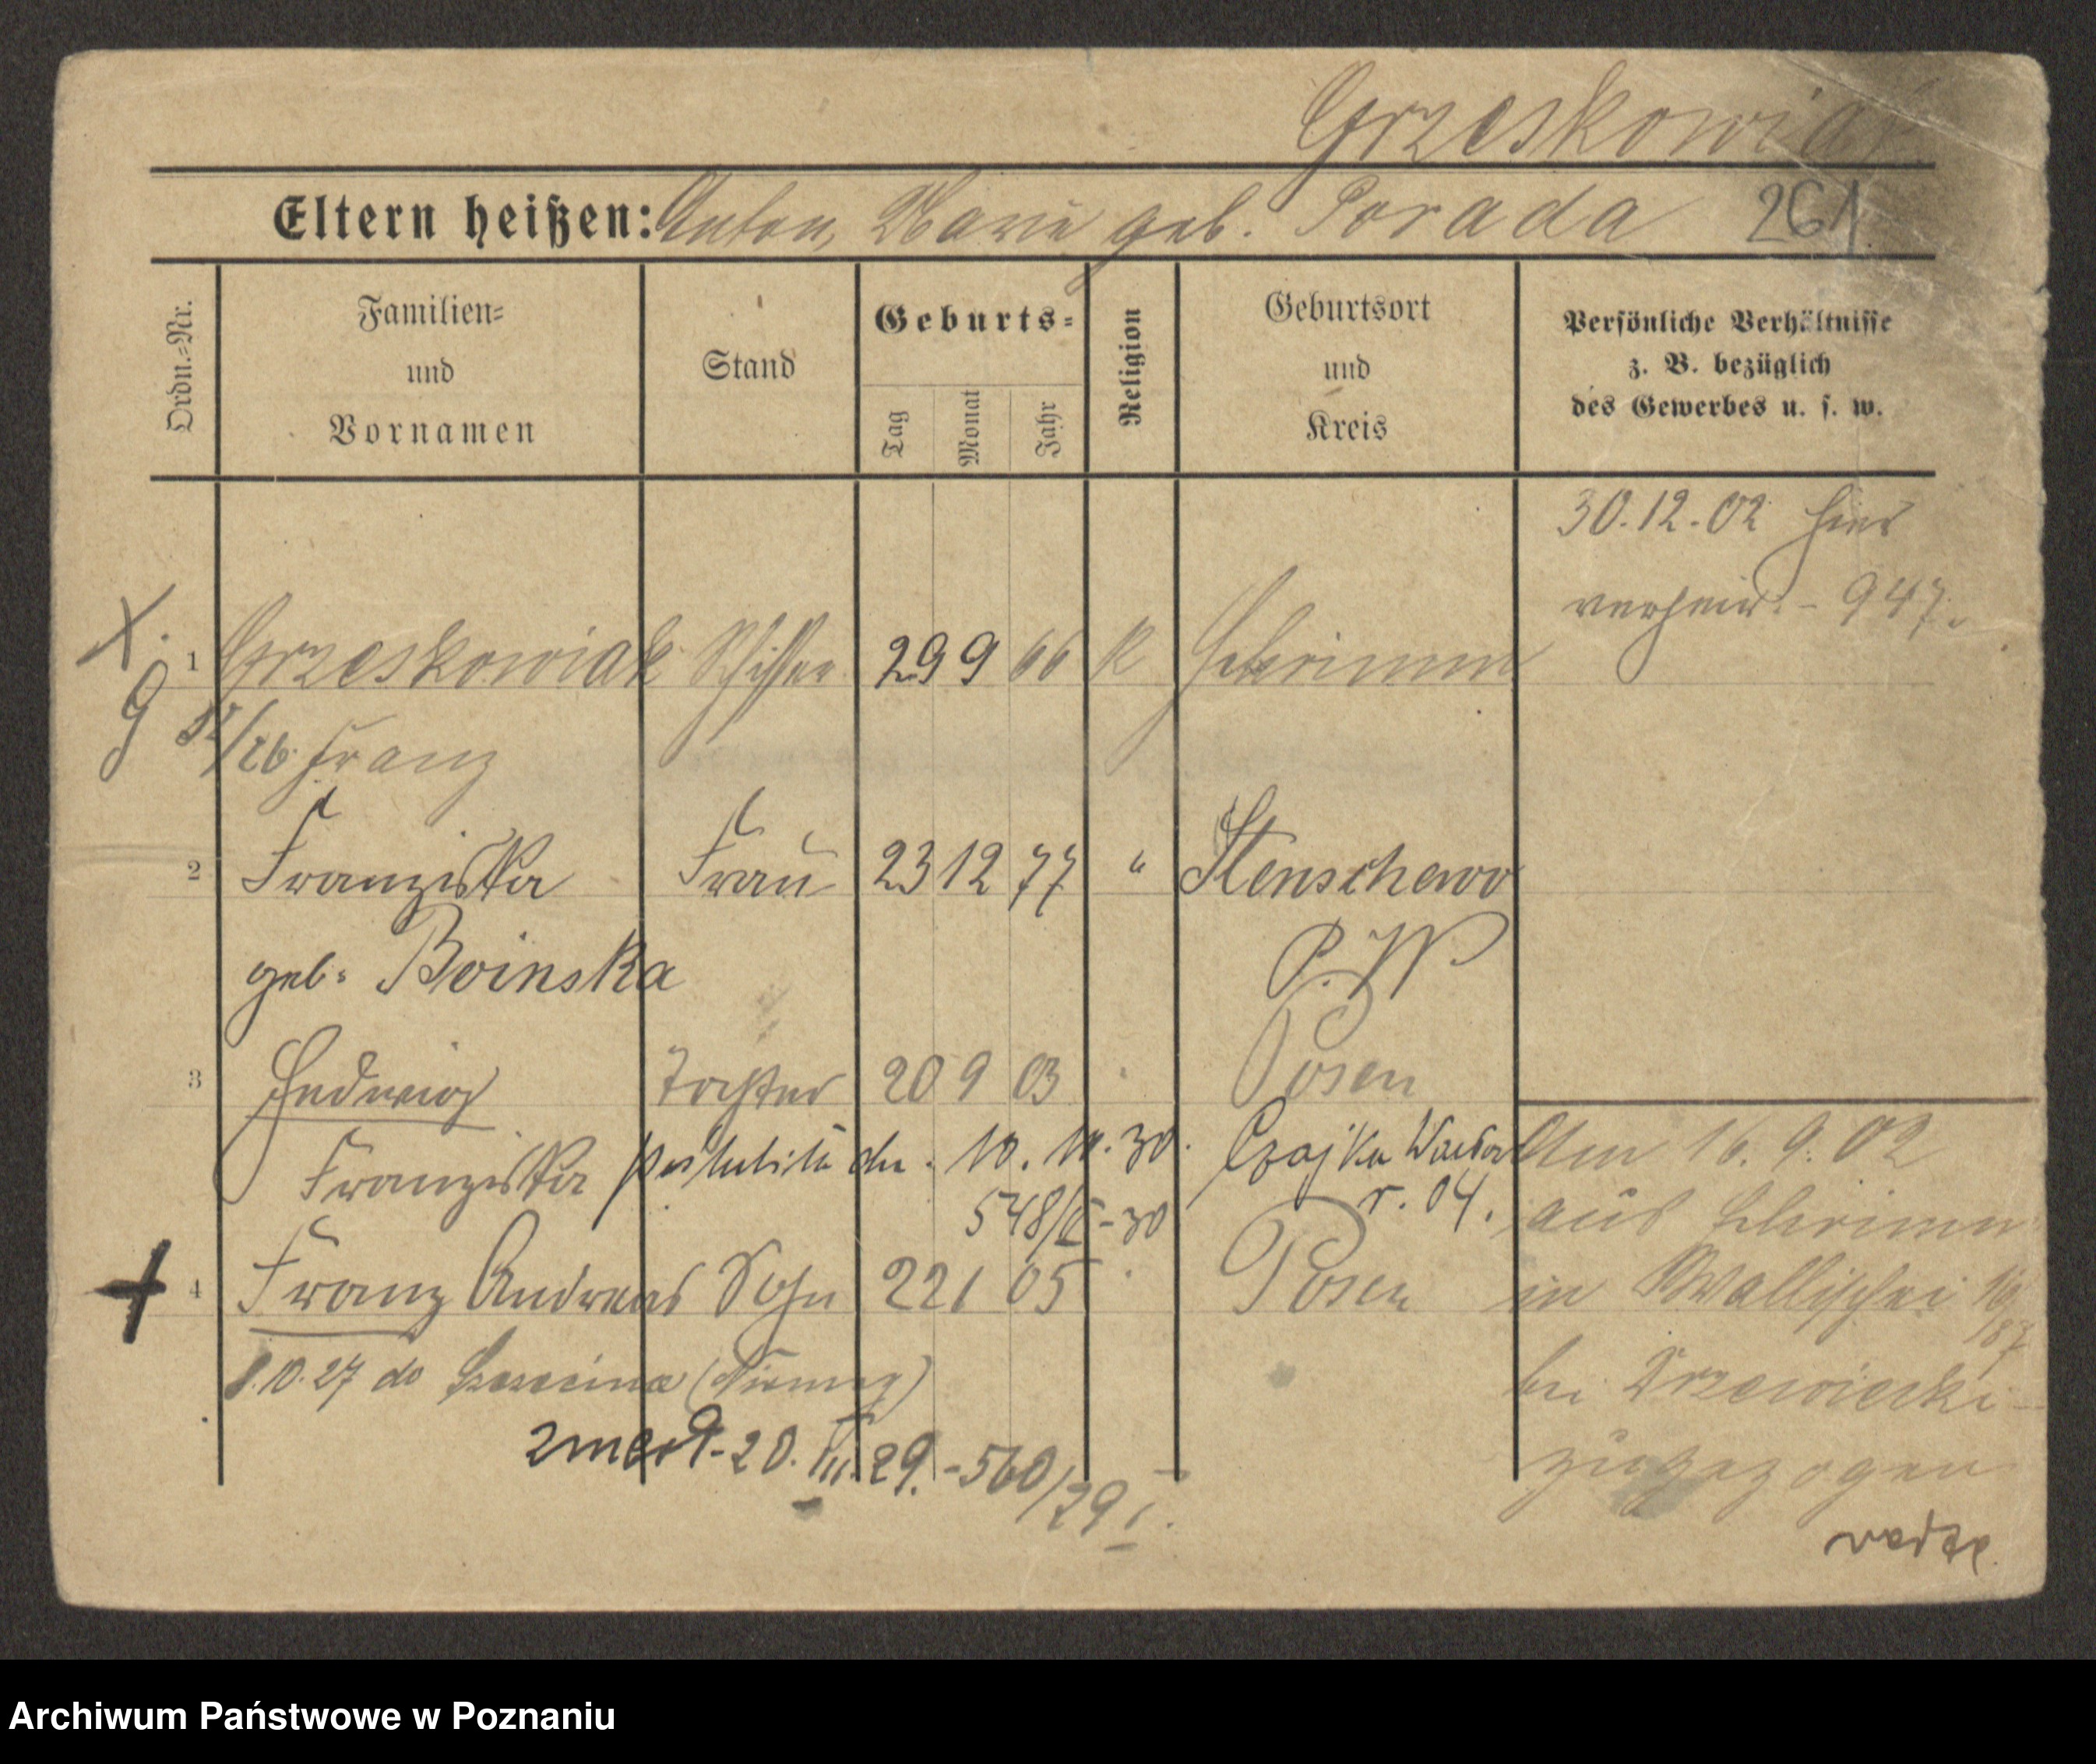 Grzeskowiak
Eltern heißen: Anton, Marie geb. Porada 261
Ordn.=Nr.
Familien=
und
Vornamen
Stand
Geburts=
Tag
Monat
Jahr
Religion
Geburtsort
und
Kreis
Persönliche Verhältnisse
z. B. bezüglich
des Gewerbes u. s. w.
30.12.02 hier
verheir. - 947.
1 Grzeskowiak Schiffer 29 9 66 K Schrimm
/26 Franz
2 Franziska Frau 23 12 77 " Stenschewo
geb. Boinska P. W.
3 Hedwig Tochter 20 9 03 Posen
Franziska 10. 30. Czajka
548/ -30 r. 04.
4 Franz Andreas Sohn 22 1 05 Posen
8.10.27 do Szczecina (Niemcy)
zmarł - 20. III. 29. - 560/29 I.
Am 16. 9. 02
aus Schrimm
in Wallischei
bei Drzewiecki
zugezogen
Archiwum Państwowe w Poznaniu